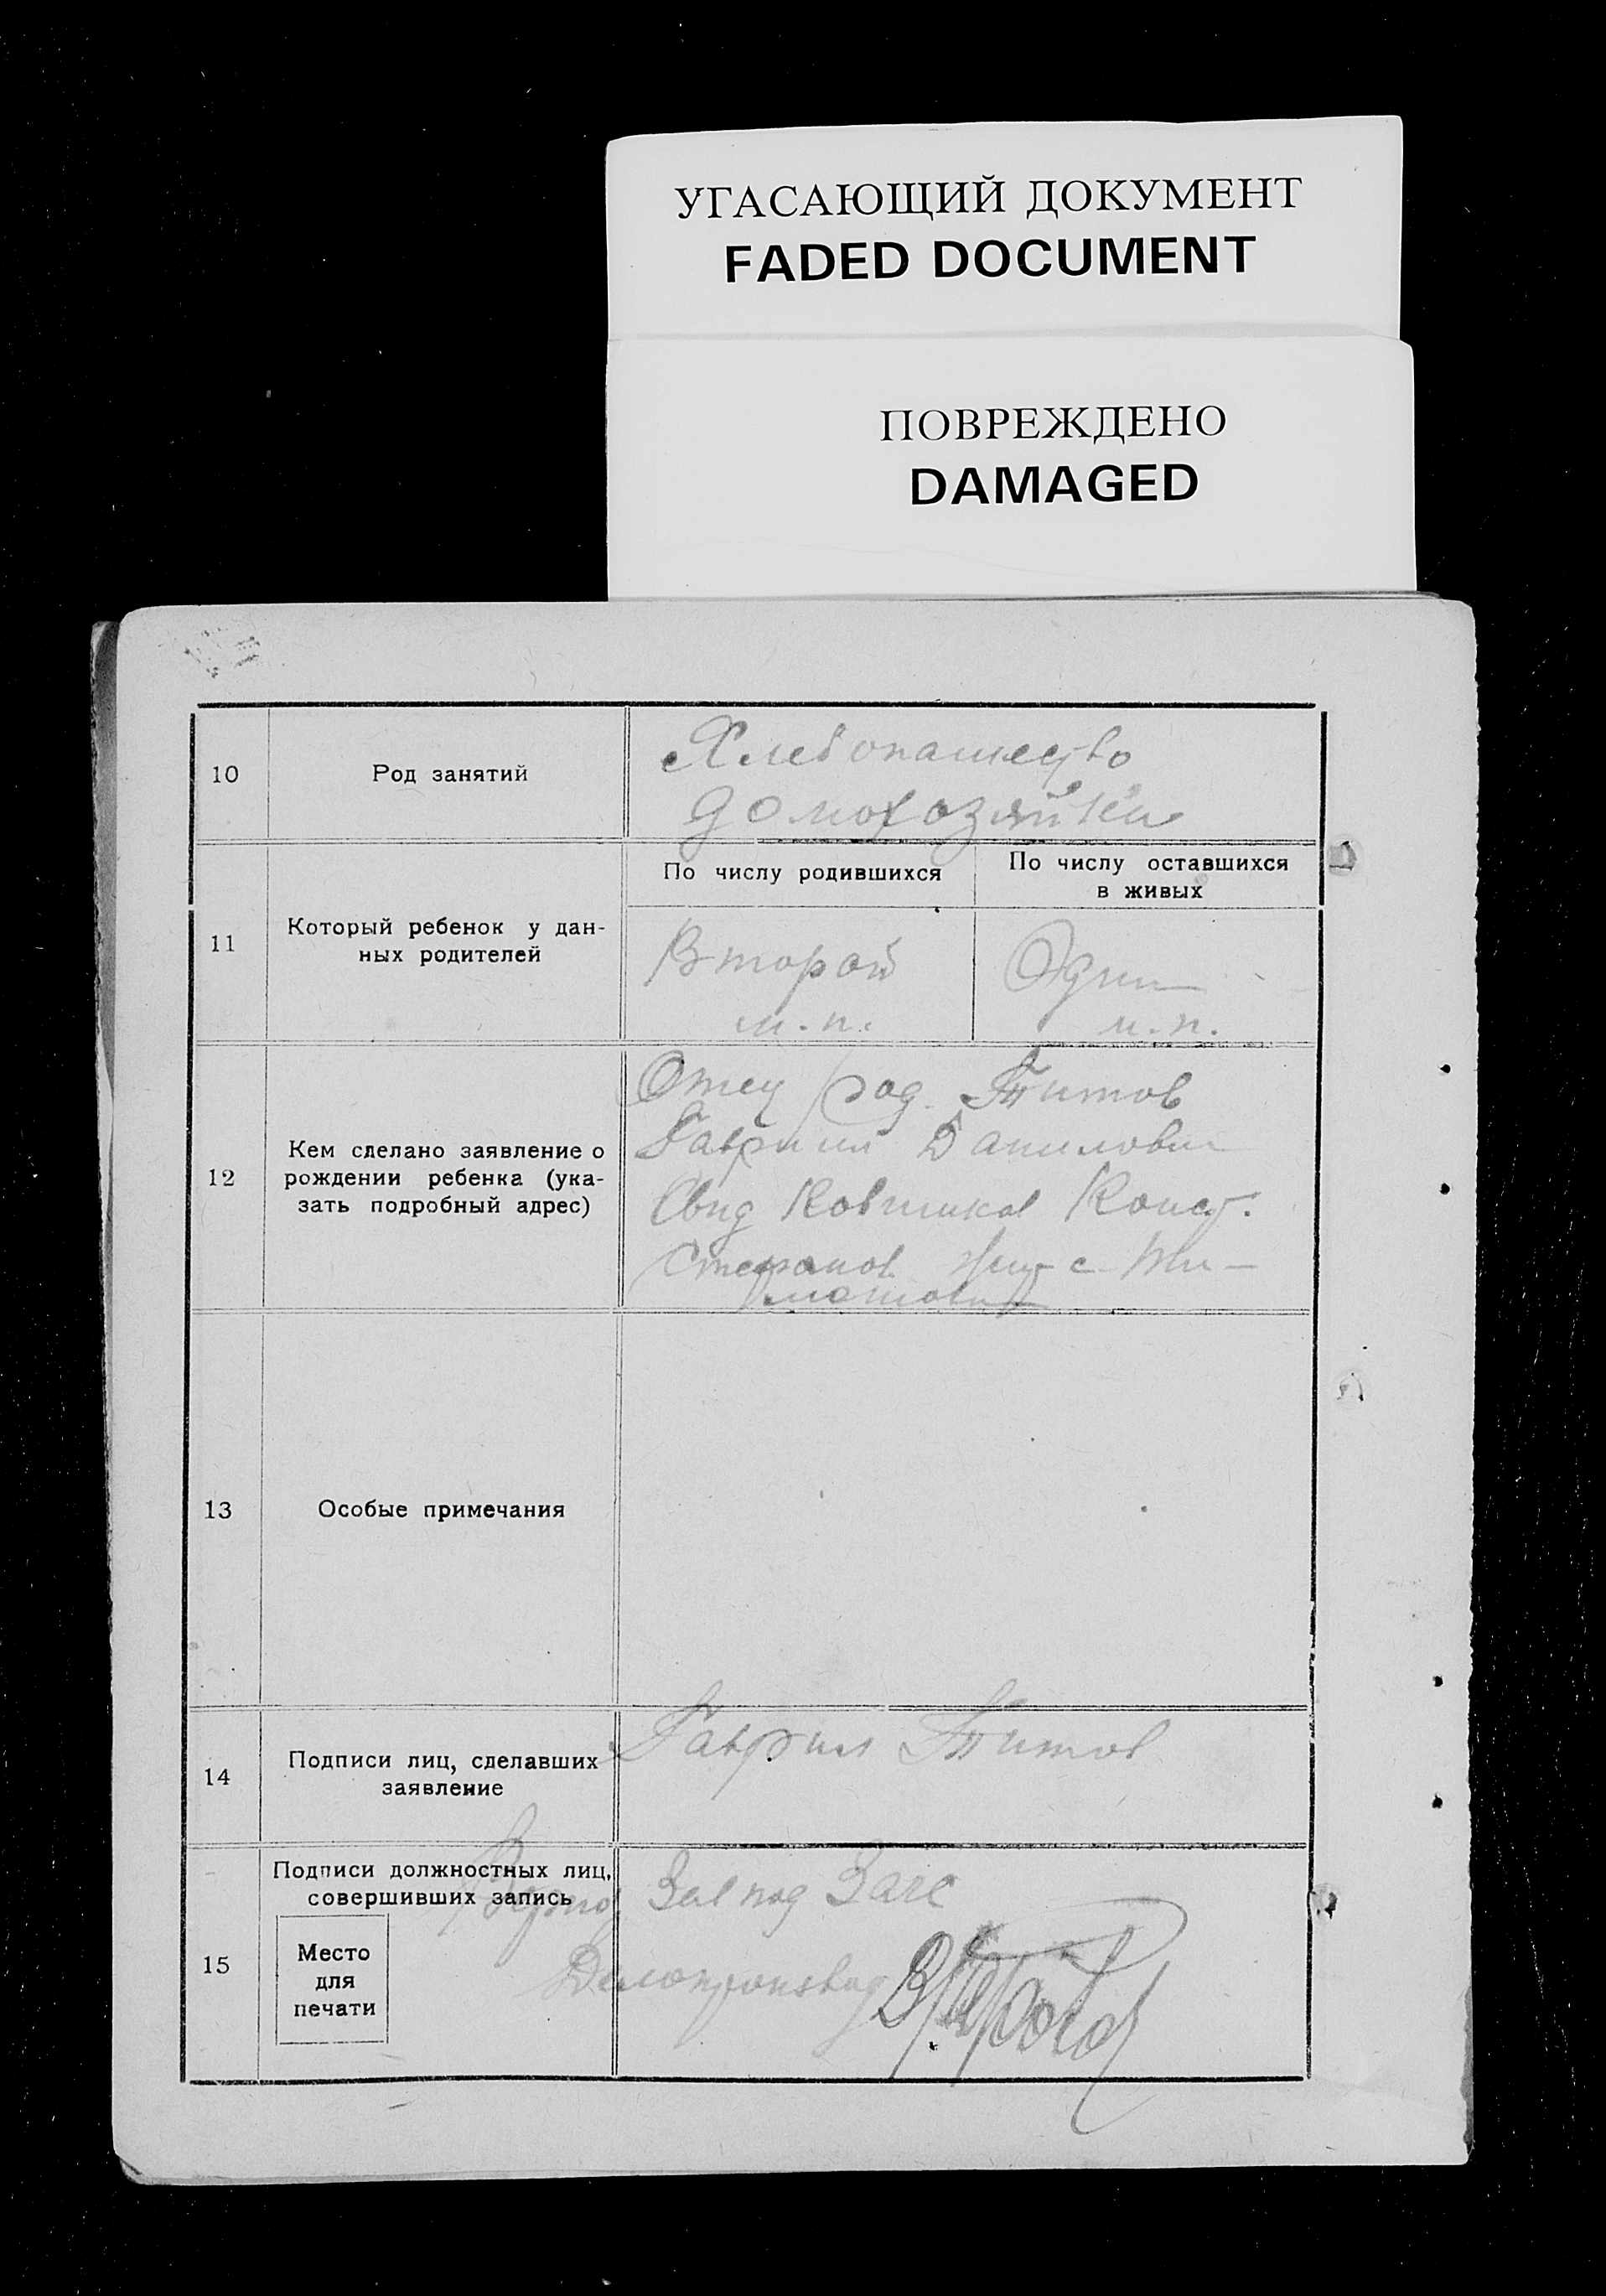 УГАСАЮЩИЙ ДОКУМЕНТ
FADED DOCUMENT
ПОВРЕЖДЕНО
DAMAGED
10
Род занятий
Хлебопашество
домохозяйка
11
Который ребенок у дан-
ных родителей
По числу родившихся
По числу оставшихся
в живых
Второй
м. п.
Один
м. п.
12
Кем сделано заявление о
рождении ребенка (ука-
зать подробный адрес)
Отец Титов
Гаврил Данилович
Свид Конст.
Степанов с
13
Особые примечания
14
Подписи лиц, сделавших
заявление
Гаврил Титов
15
Подписи должностных лиц,
совершивших запись
Место
для
печати
Зав под Загс
Делопроизвод